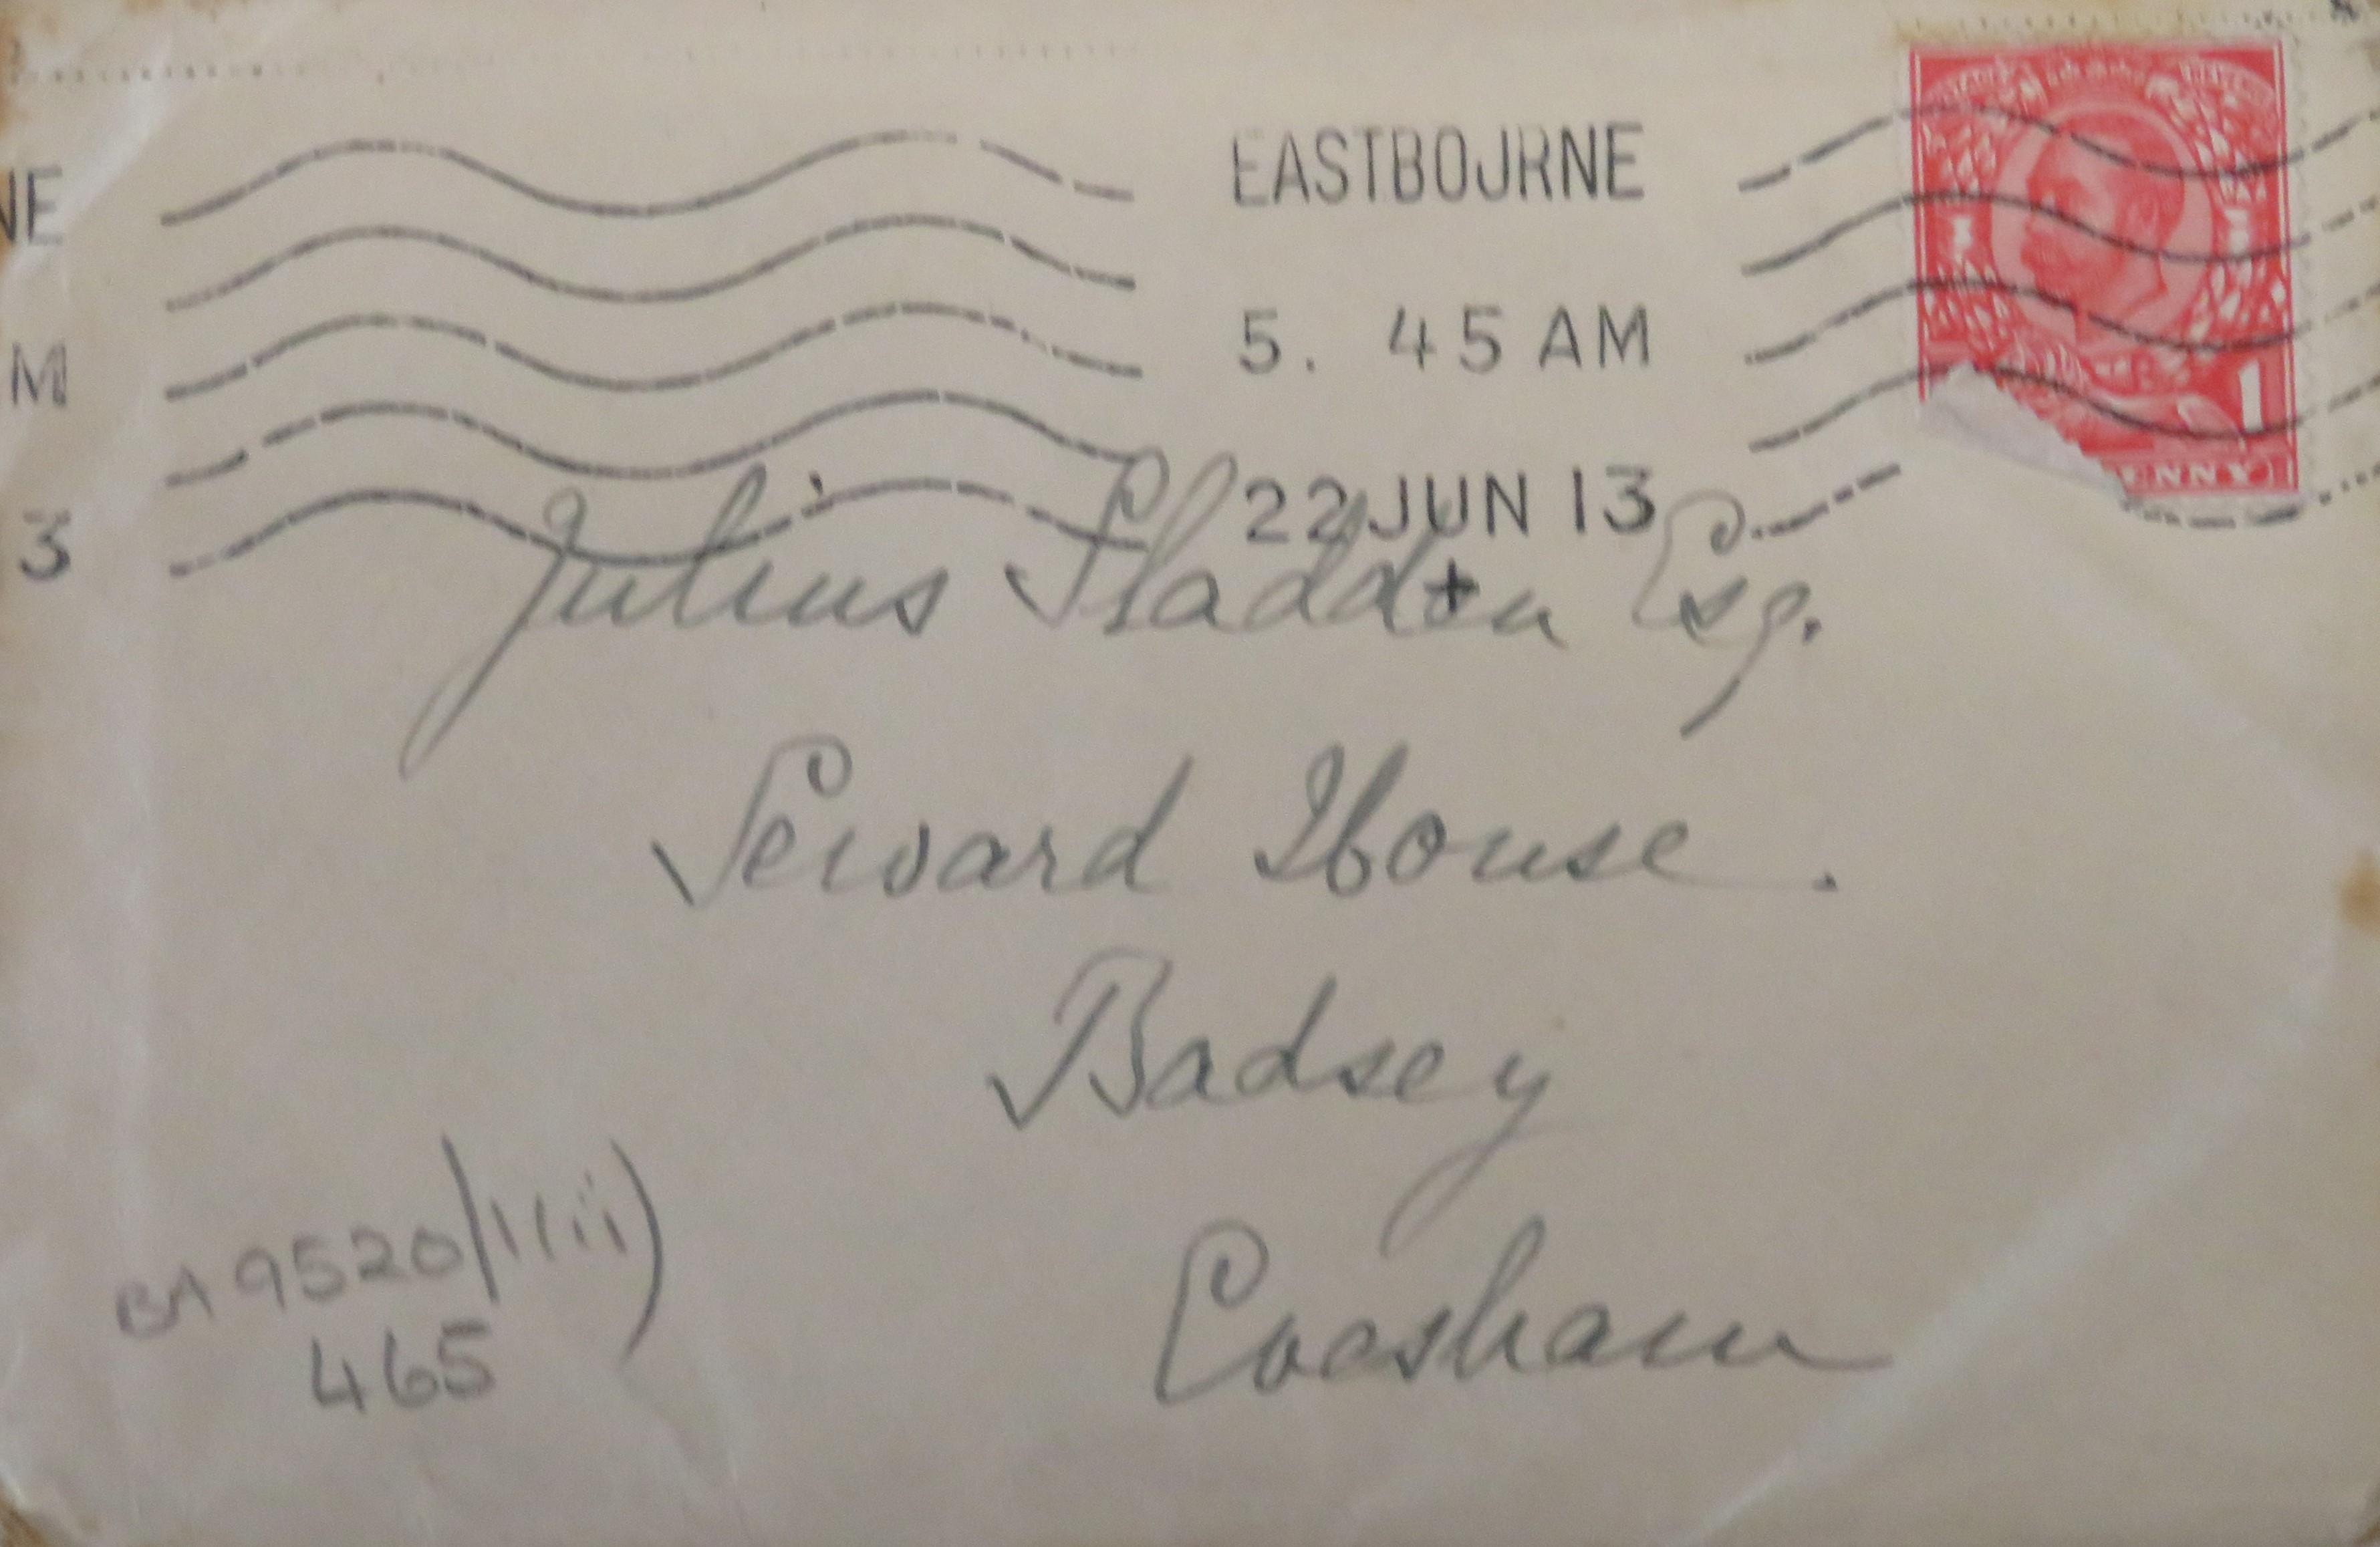 NE
EASTBOURNE
M
5. 45 AM
3
22 JUN 13
1
ENNY
Julius Sladden Esq.
Seward House.
Badsey
BA 9520/1(iii)
465